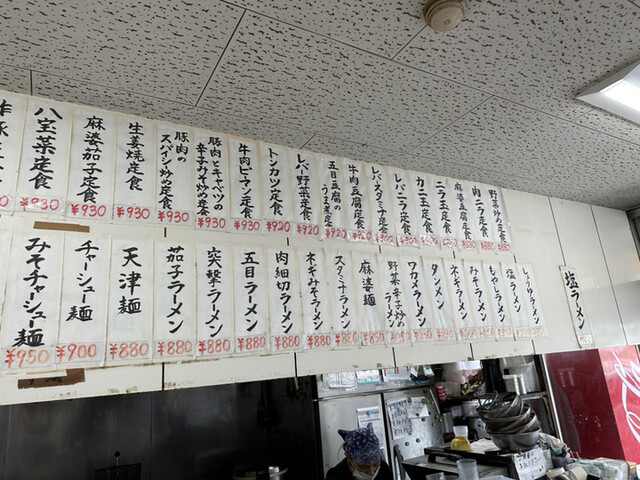 八宝菜定食
¥930
麻婆茄子定食
¥930
生姜焼定食
¥930
豚肉の
スパイシ炒め定食
¥930
豚肉とキャベツの
辛子みそ炒め定食
¥930
牛肉ピーマン定食
¥930
トンカツ定食
¥920
レバー野菜定食
¥920
五目豆腐の
うま煮定食
¥920
牛肉豆腐定食
¥920
レバースタミナ定食
レバニラ定食
カニ玉定食
ニラ玉定食
麻婆豆腐定食
肉ニラ定食
¥880
野菜炒め定食
¥880
みそチャーシュー麺
¥950
チャーシュー麺
¥900
天津麺
¥880
茄子ラーメン
¥880
突撃ラーメン
¥880
五目ラーメン
¥880
肉細切ラーメン
¥880
ネギみそラーメン
¥880
スタミナラーメン
¥880
麻婆麺
¥850
野菜辛子炒め
ラーメン
ワカメラーメン
タンメン
ネギラーメン
みそラーメン
もやしラーメン
塩ラーメン
しょうゆラーメン
塩ラーメン